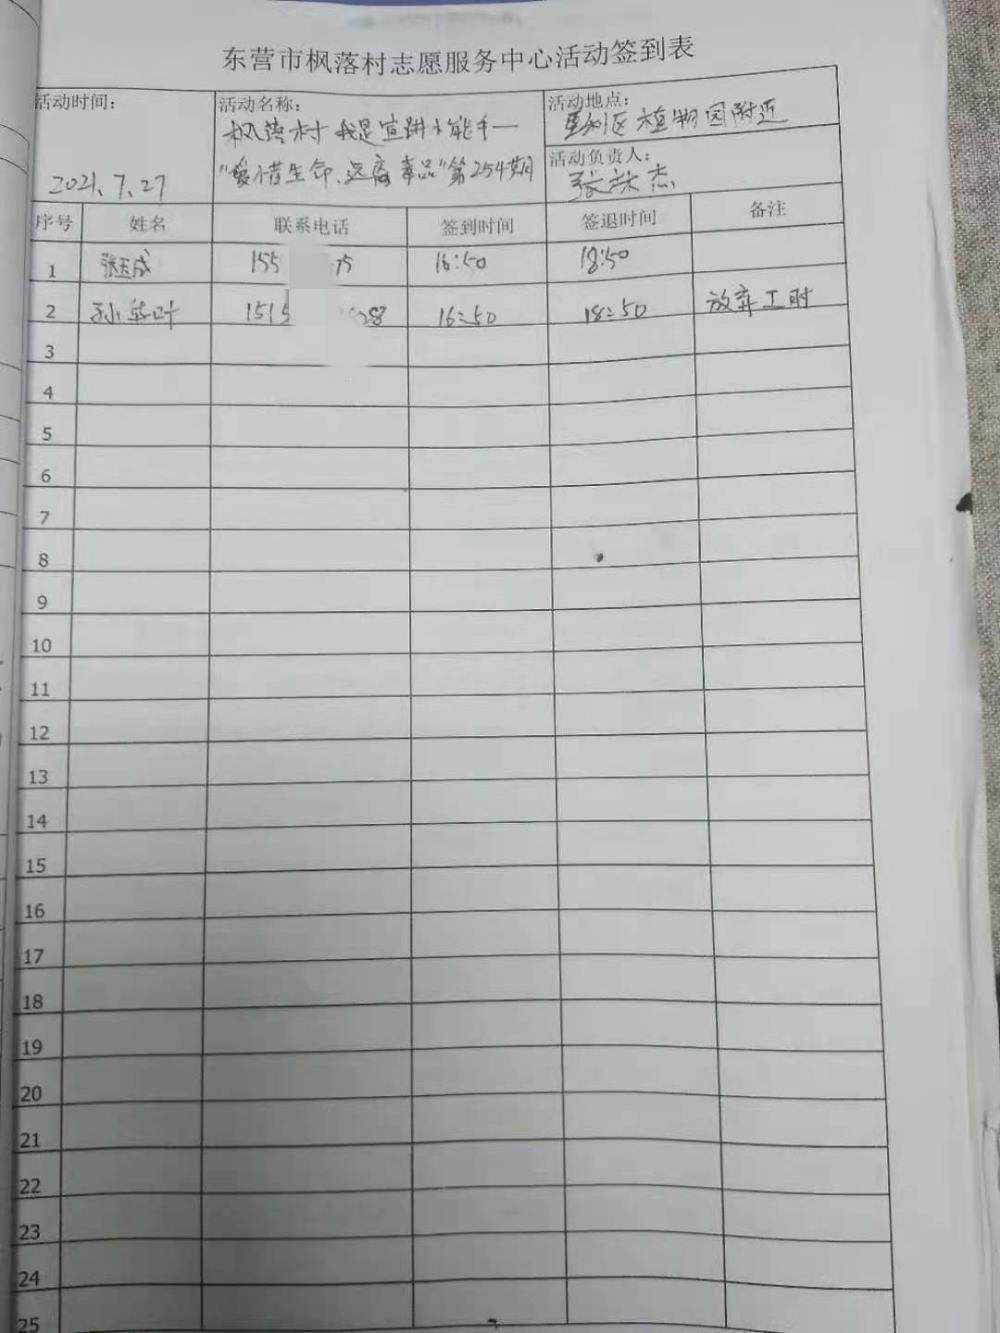 东营市枫落村志愿服务中心活动签到表
活动时间：
2021.7.27
活动名称：
枫落村 我是宣讲小能手—
"爱惜生命、远离毒品"第254期
活动地点：
垦利区植物园附近
活动负责人：
张 杰
序号 姓名 联系电话 签到时间 签退时间 备注
1 张玉成 155 75 16:50 18:50
2 孙 叶 1515 88 16:50 18:50 放弃工时
3
4
5
6
7
8
9
10
11
12
13
14
15
16
17
18
19
20
21
22
23
24
25